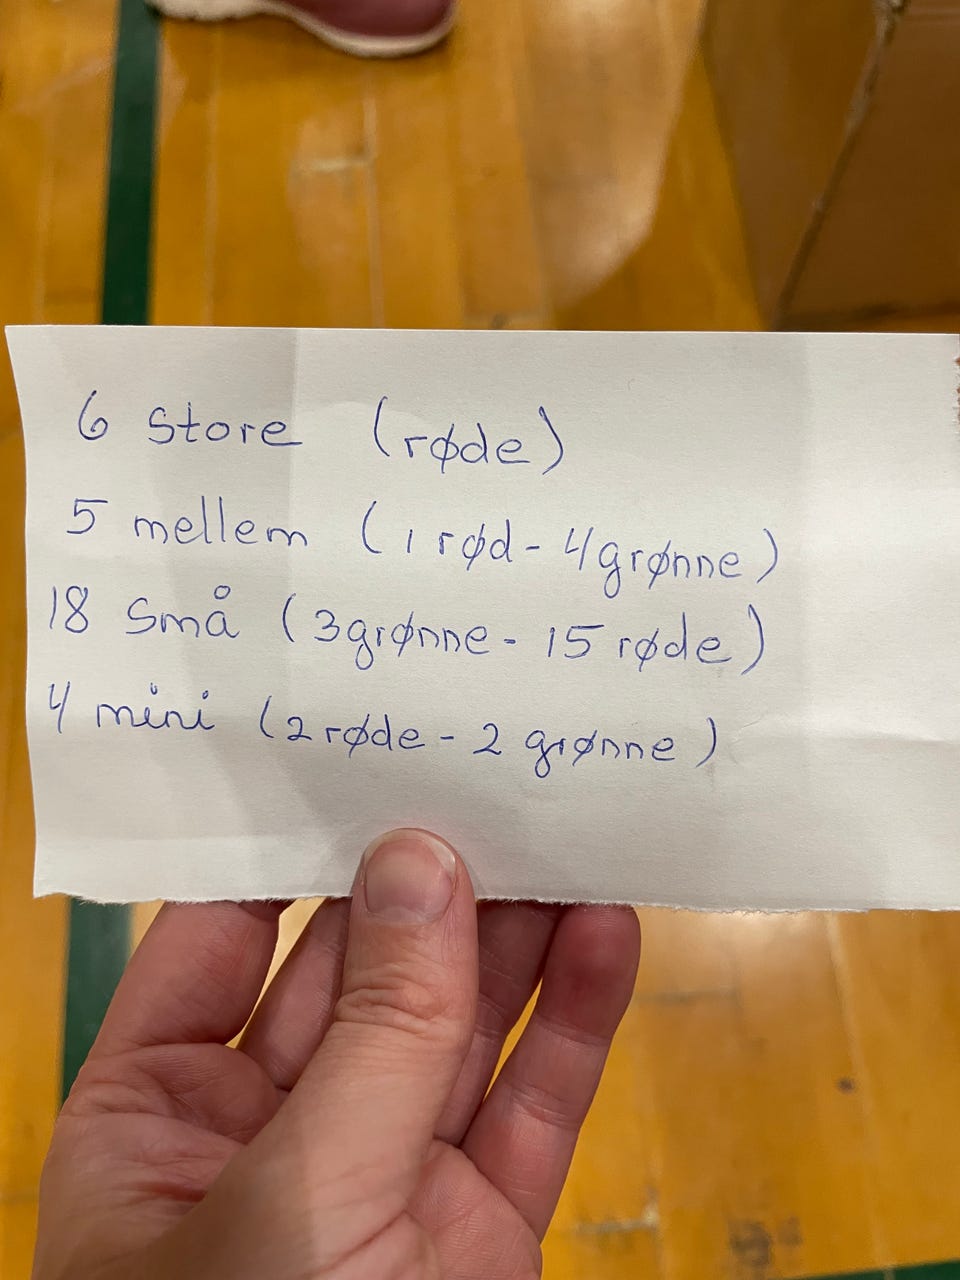 6 store (røde)
5 mellem (1 rød - 4 grønne)
18 små (3 grønne - 15 røde)
4 mini (2 røde - 2 grønne)